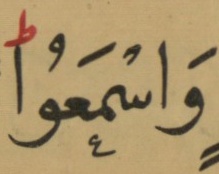 وَاسْمَعُواؕ